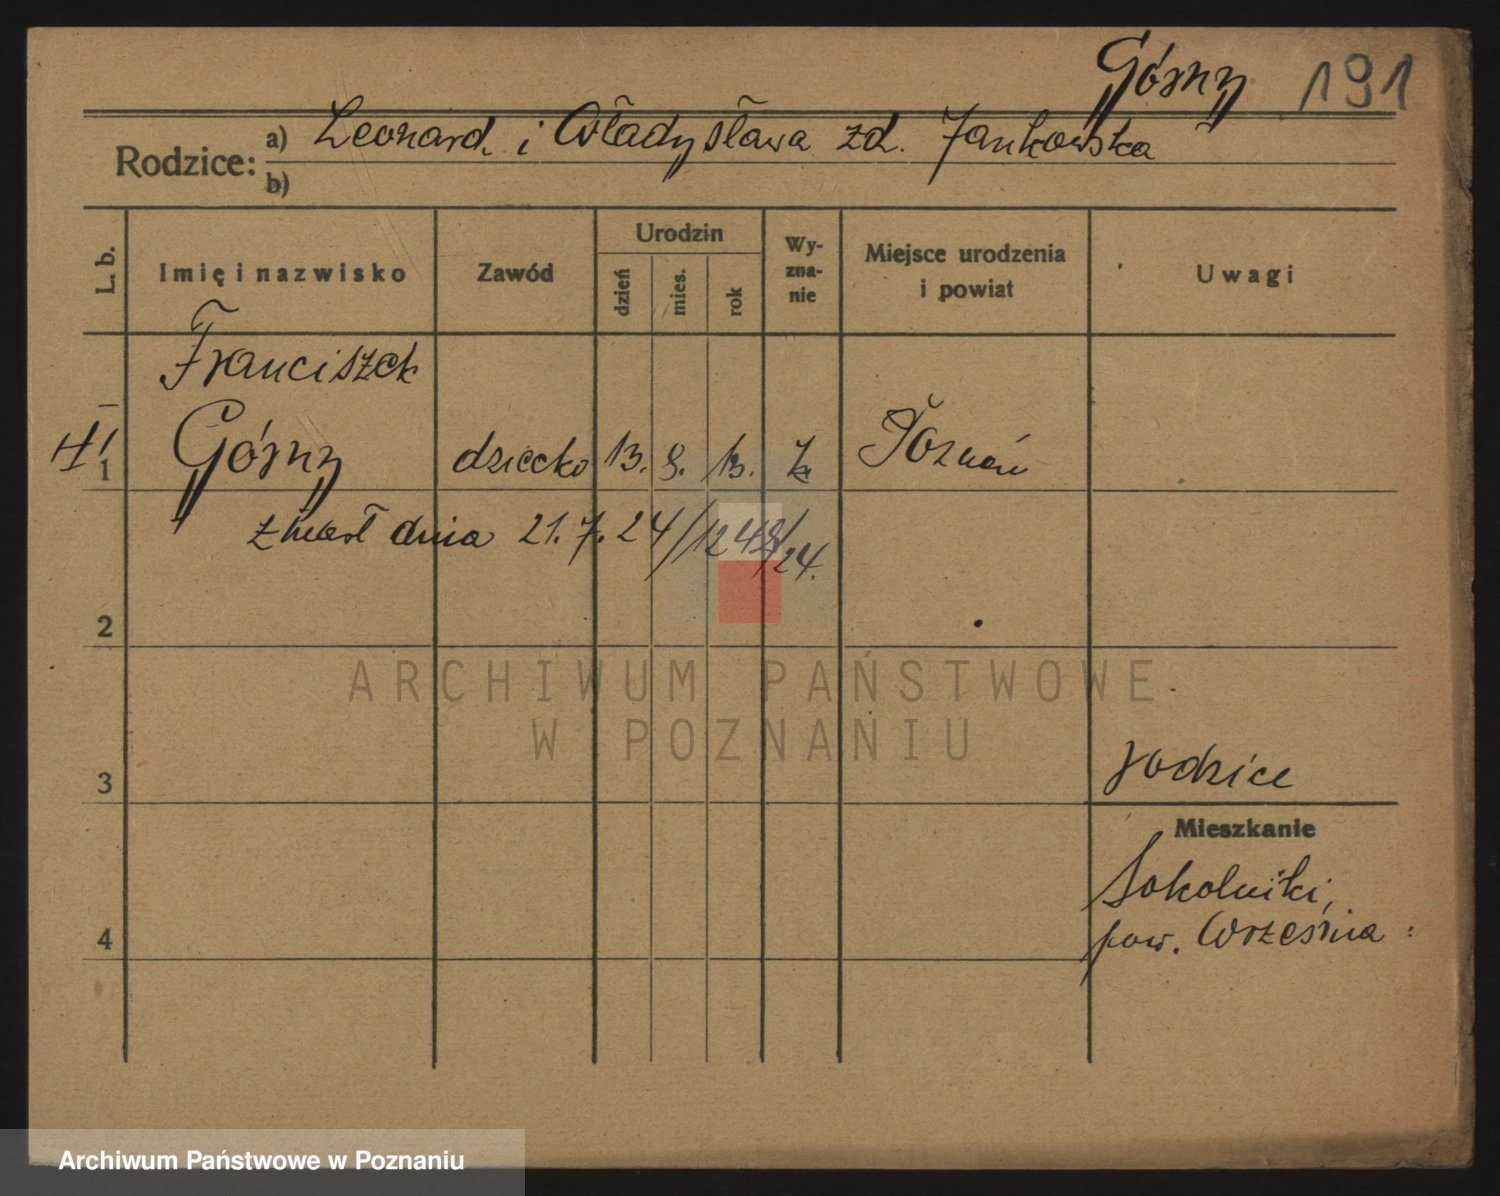 Górny 191
Rodzice: a) Leonard i Władysława zd. Jankowska
b)
L. b. Imię i nazwisko Zawód Urodzin dzień mies. rok Wyznanie Miejsce urodzenia i powiat Uwagi
Franciszek
1 Górny dziecko 13. 9. 13. k. Poznań
zmarł dnia 21. 7. 24/1248/24.
2
ARCHIWUM PAŃSTWOWE
W POZNANIU
3 rodzice
Mieszkanie
Sokolniki,
4 pow. Września
Archiwum Państwowe w Poznaniu